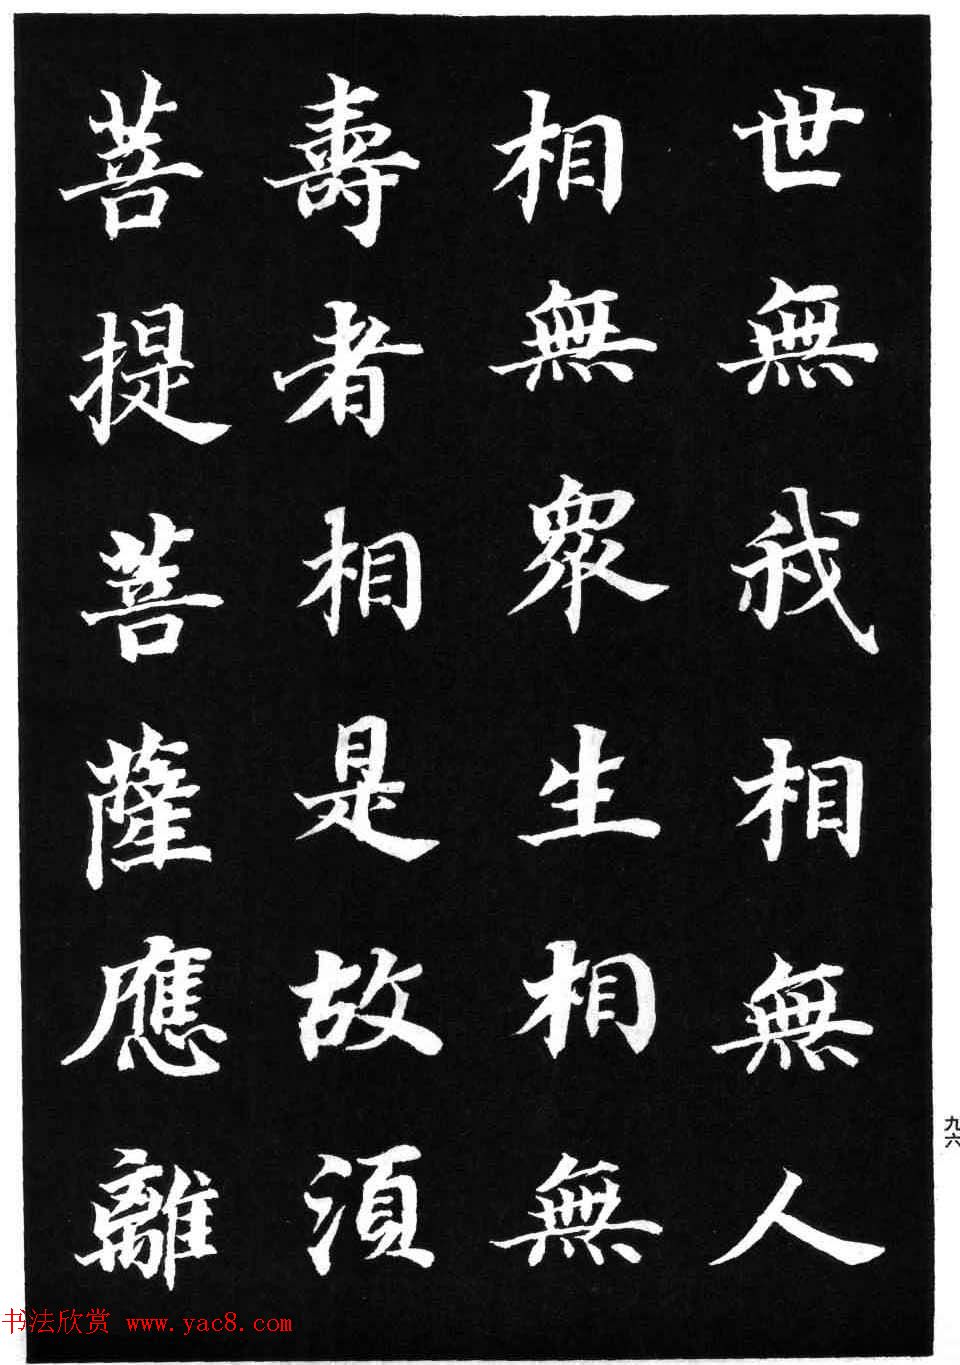 世無我相無人
相無衆生相無
壽者相是故須
菩提菩薩應離
九六
书法欣赏 www.yac8.com